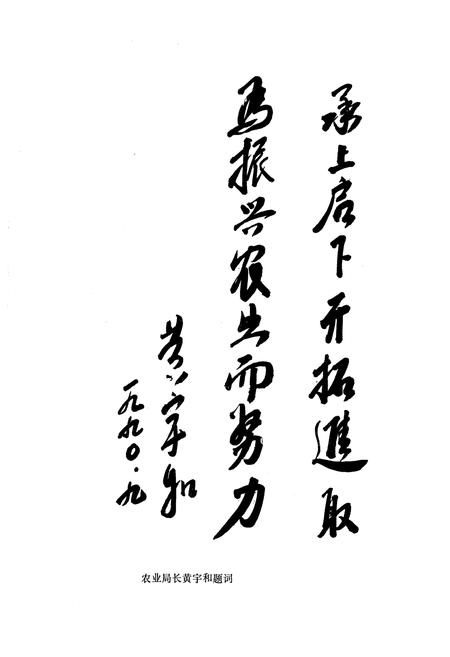 承上启下开拓進取
為振兴农业而努力
黄宇和
一九九〇.九
农业局长黄宇和题词